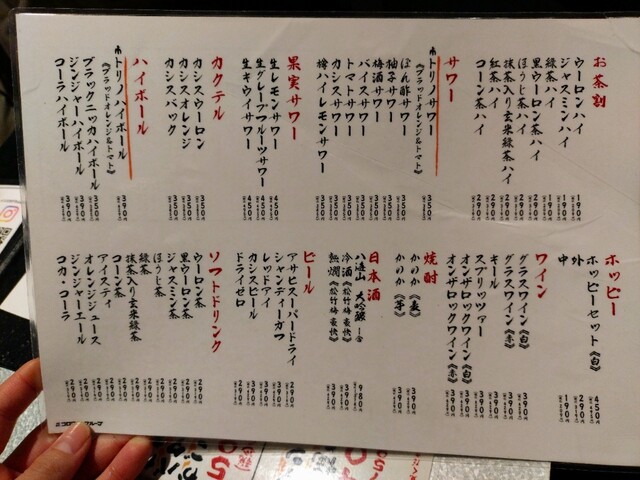 お茶割
ウーロンハイ 190円
ジャスミンハイ 190円
緑茶ハイ 190円
黒ウーロン茶ハイ 290円
ほうじ茶ハイ 290円
抹茶入り玄米緑茶ハイ 290円
紅茶ハイ 290円
コーン茶ハイ 290円
サワー
トリノサワー
《ブラッドオレンジ&トマト》
ぽん酢サワー 350円
柚子サワー 350円
梅酒サワー 350円
バイスサワー 350円
トマトサワー 350円
カシスサワー 350円
樽ハイレモンサワー 350円
果実サワー
生レモンサワー 450円
生グレープフルーツサワー 450円
生キウイサワー 450円
カクテル
カシスウーロン 350円
カシスオレンジ 350円
カシスバック 350円
ハイボール
トリノハイボール 390円
《ブラッドオレンジ&トマト》
ブラックニッカハイボール 350円
ジンジャーハイボール 390円
コーラハイボール 390円
ホッピー
ホッピーセット《白》 450円
外 290円
中 190円
ワイン
グラスワイン《白》 390円
グラスワイン《赤》 390円
キール 390円
スプリッツァー 390円
オンザロックワイン《白》 390円
オンザロックワイン《赤》 390円
焼酎
かのか《麦》 390円
かのか《芋》 390円
日本酒
八海山 大吟醸 一合 980円
冷酒《松竹梅 豪快》 390円
熱燗《松竹梅 豪快》 390円
ビール
アサヒスーパードライ
シャンディーガフ
レッドアイ
カシスビール
ドライゼロ
ソフトドリンク
ウーロン茶 290円
黒ウーロン茶 290円
ジャスミン茶 290円
ほうじ茶 290円
緑茶 290円
抹茶入り玄米緑茶 290円
コーン茶 290円
アイスティー 290円
オレンジジュース 290円
ジンジャーエール 290円
コカ・コーラ 290円